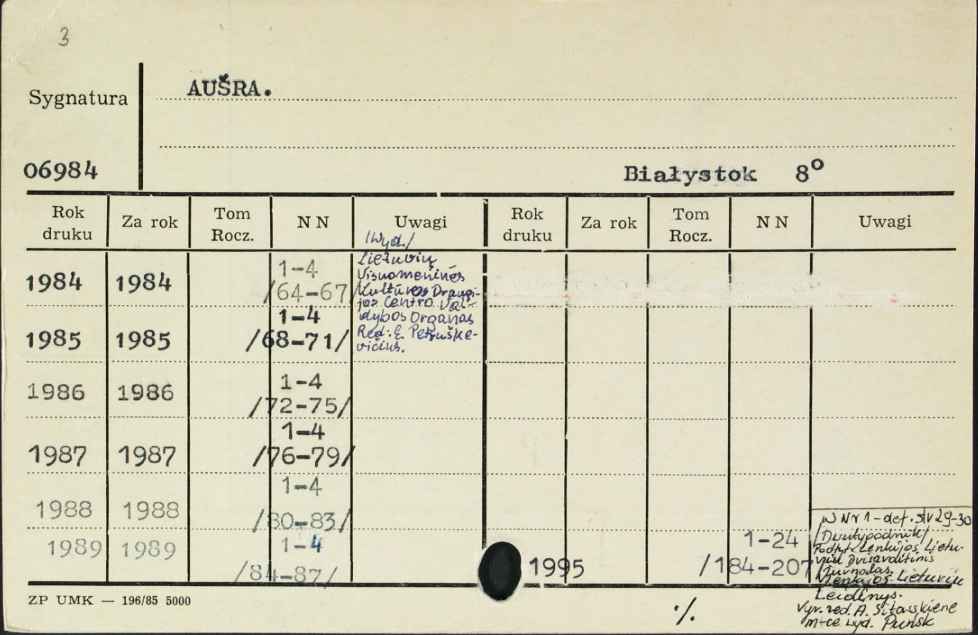 3
Sygnatura
AUŠRA.
06984
Białystok 8⁰
Rok druku Za rok Tom Rocz. N N Uwagi Rok druku Za rok Tom Rocz. N N Uwagi
1984 1984 1-4 /64-67/
/Wyd./
Lietuvių
Visuomeninės
Kultūros Draugi-
jos Centro Val-
dybos Organas
Red: E. Petruške-
vičius.
1985 1985 1-4 /68-71/
1986 1986 1-4 /72-75/
1987 1987 1-4 /76-79/
1988 1988 1-4 /80-83/
1989 1989 1-4 /84-87/
1995 1-24 /184-207/
W Nr 1 - def. str 29-30
/Dwutygodnik/
Podtyt. Lenkijos Lietu-
vių dvisavaitinis
žurnalas
Lenkijos Lietuvių
Leidinys.
Vyr. red. A.
m-ce wyd. Puńsk
ZP UMK — 196/85 5000
·/.